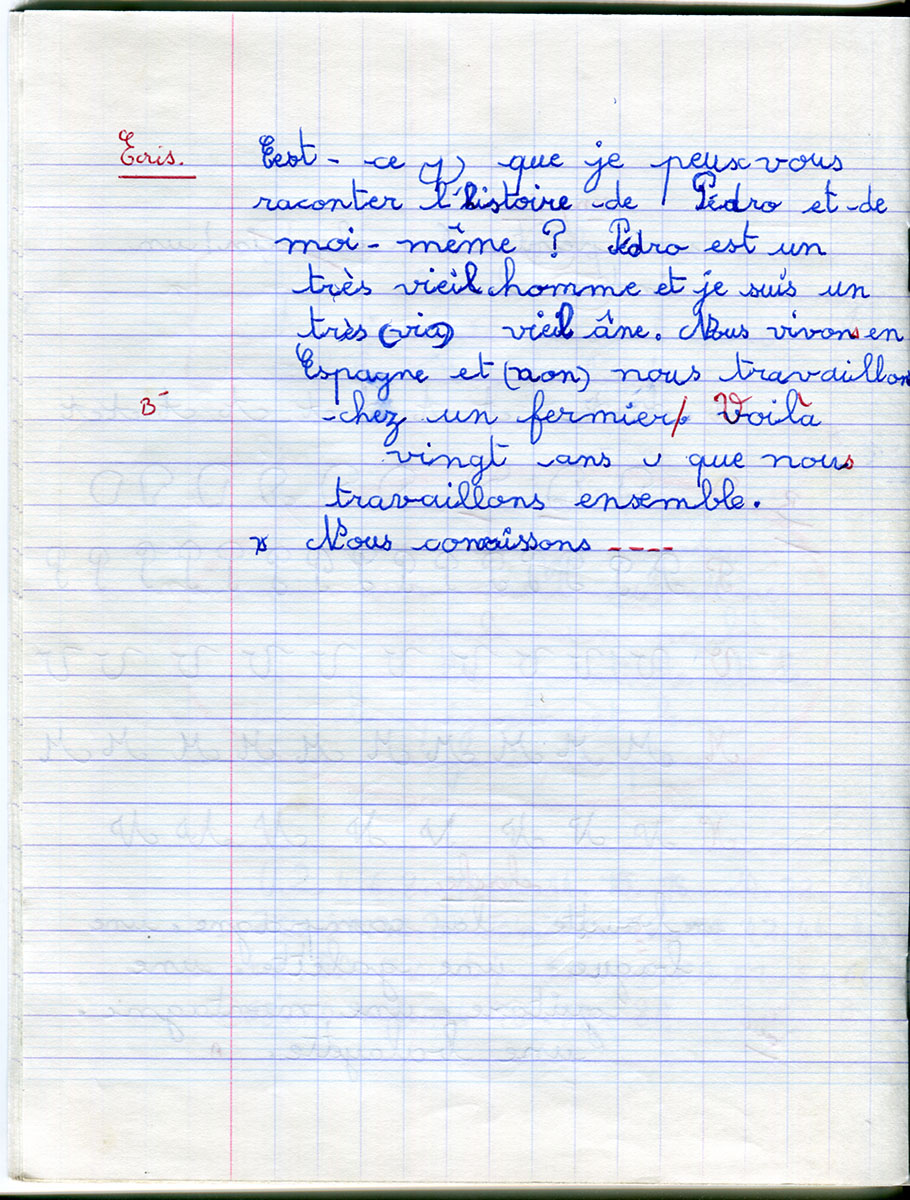 Ecris. Eest-ce q) que je peux vous
raconter l'histoire de Pédro et de
moi-même ? Pédro est un
très vieil homme et je suis un
très (via) vieil âne. Nous vivons en
Espagne et (non) nous travaillon
B- chez un fermier/ Voilà
vingt ans que nous
travaillons ensemble.
Nous connaissons ----